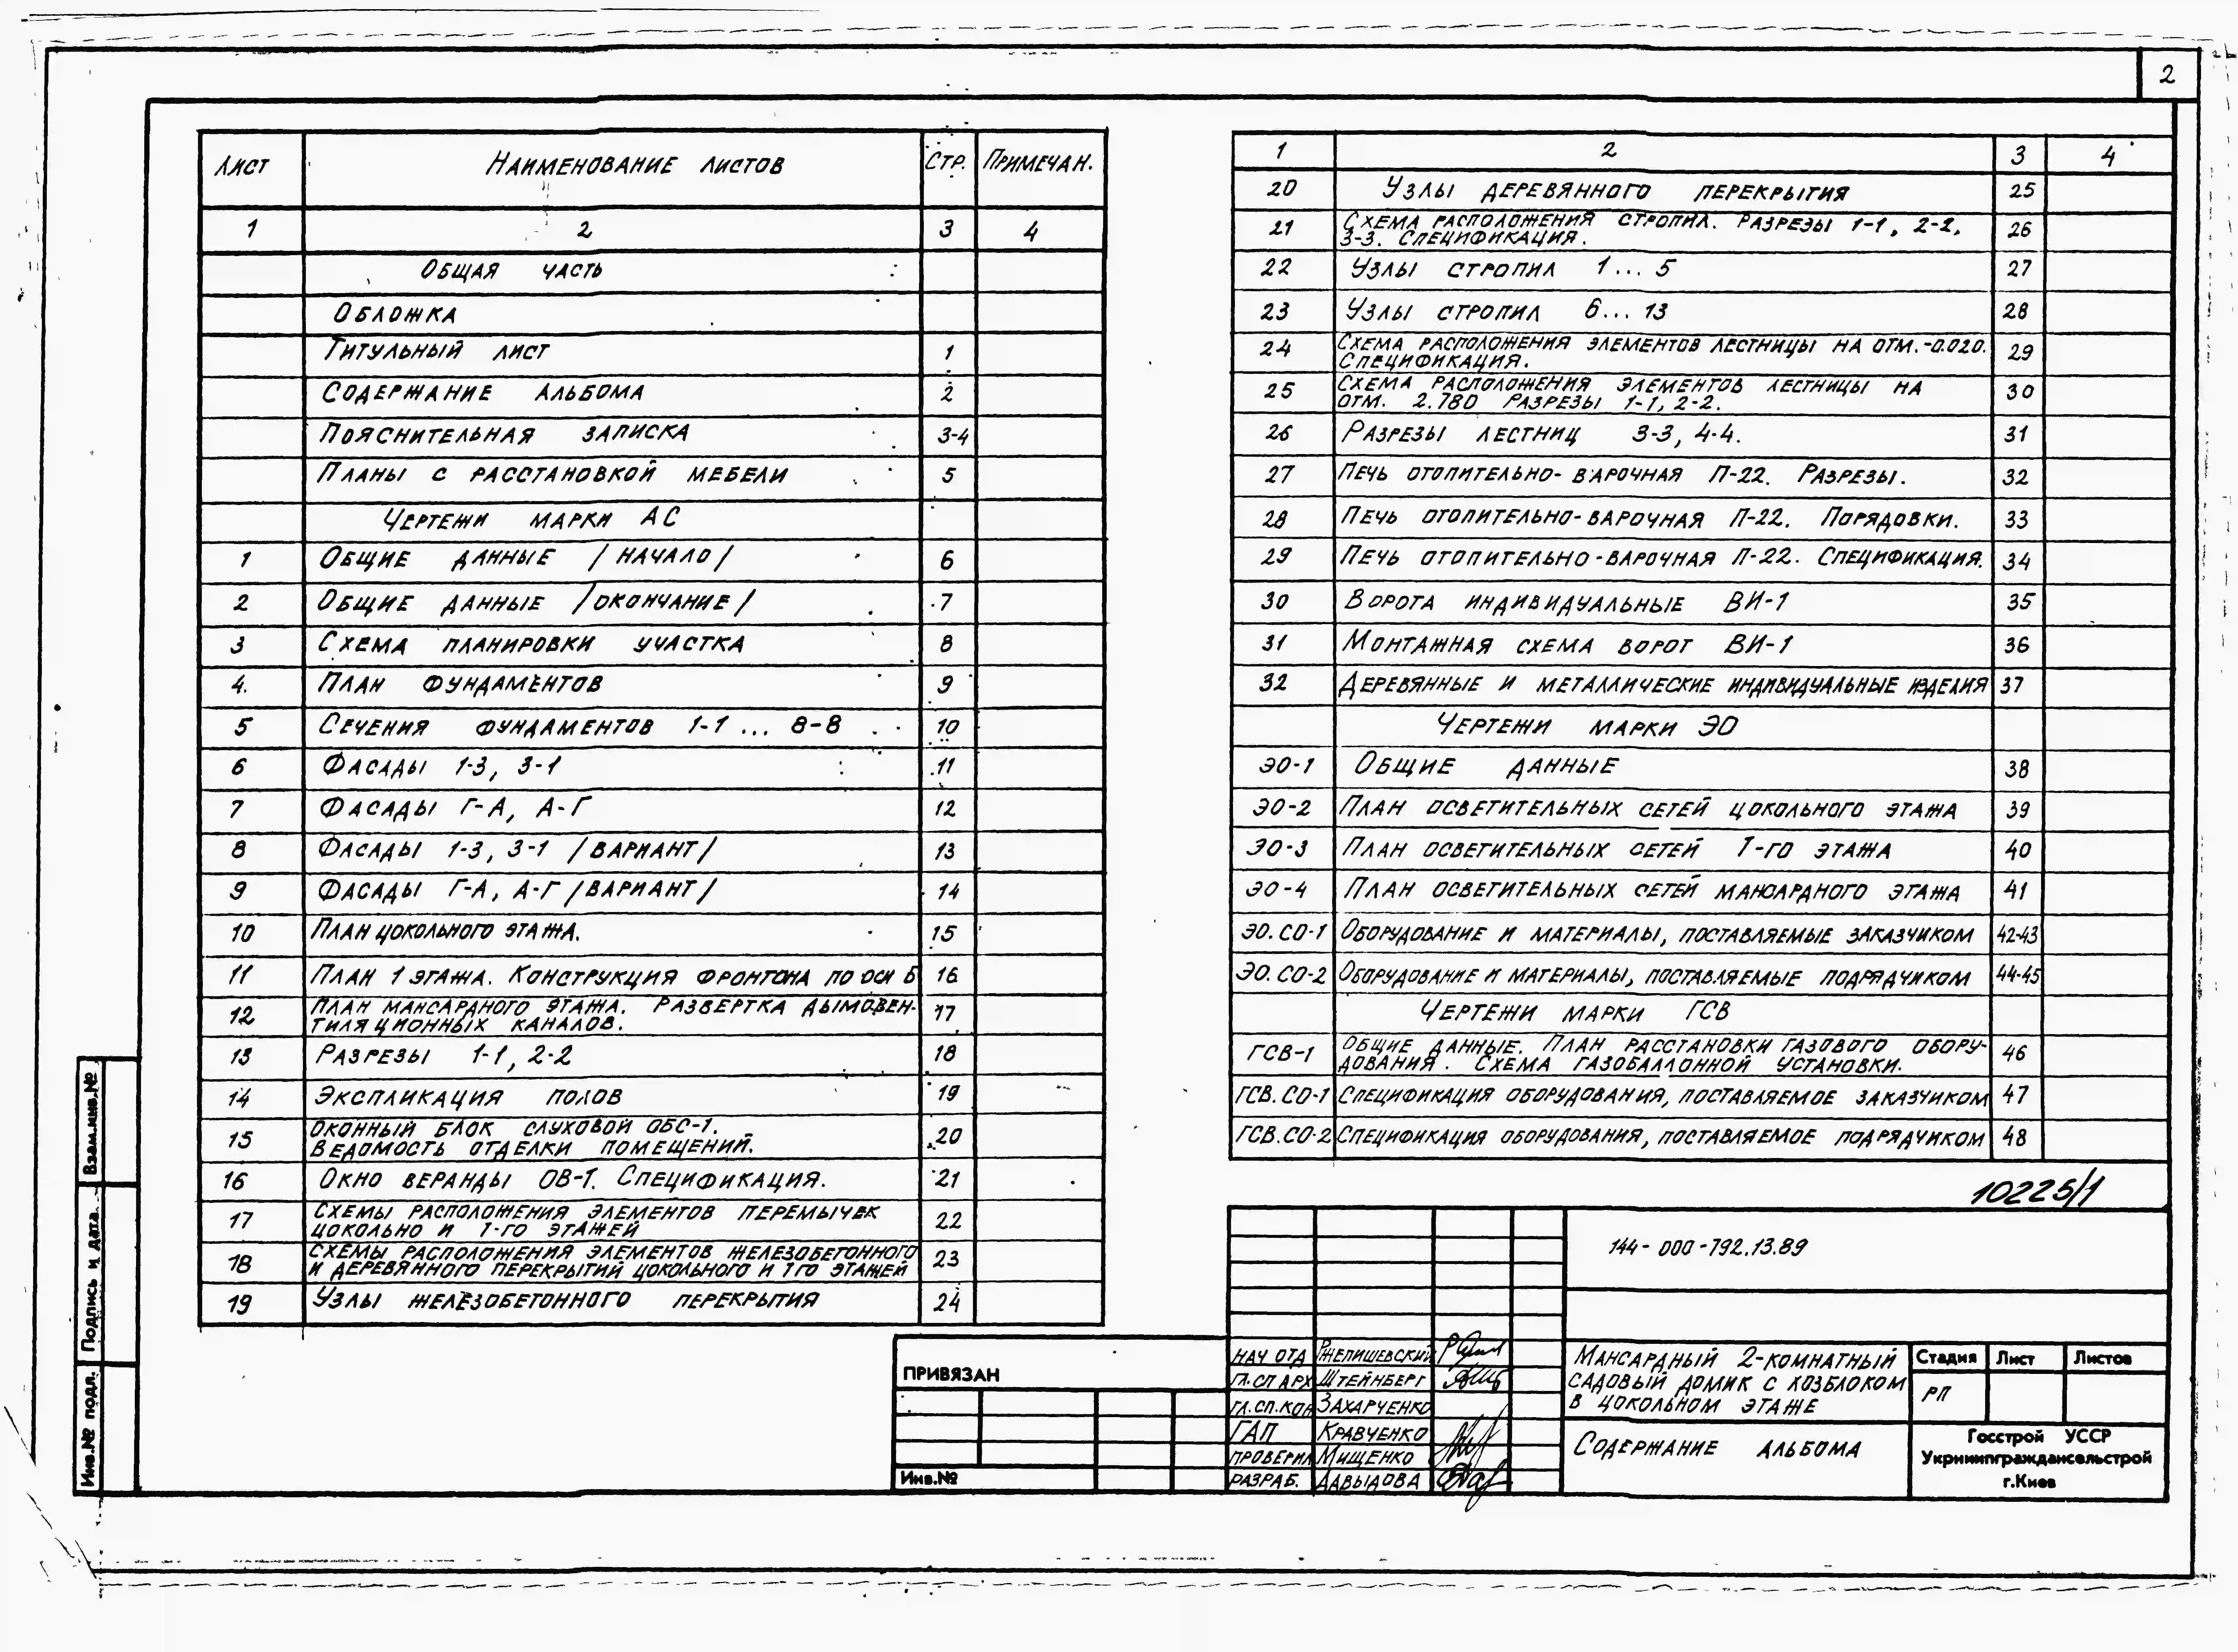 2
Лист Наименование листов Стр. Примечан.
1 2 3 4
Общая часть
Обложка
Титульный лист 1
Содержание альбома 2
Пояснительная записка 3-4
Планы с расстановкой мебели 5
Чертежи марки АС
1 Общие данные /начало/ 6
2 Общие данные /окончание/ 7
3 Схема планировки участка 8
4. План фундаментов 9
5 Сечения фундаментов 1-1 ... 8-8 10
6 Фасады 1-3, 3-1 11
7 Фасады Г-А, А-Г 12
8 Фасады 1-3, 3-1 /вариант/ 13
9 Фасады Г-А, А-Г /вариант/ 14
10 План цокольного этажа. 15
11 План 1 этажа. Конструкция фронтона по оси Б 16
12 План мансардного этажа. Развертка дымовен-
тиляционных каналов. 17
13 Разрезы 1-1, 2-2 18
14 Экспликация полов 19
15 Оконный блок слуховой ОБС-1.
Ведомость отделки помещений. 20
16 Окно веранды ОВ-1. Спецификация. 21
17 Схемы расположения элементов перемычек
цокольно и 1-го этажей 22
18 Схемы расположения элементов железобетонного
и деревянного перекрытий цокольного и 1го этажей 23
19 Узлы железобетонного перекрытия 24
1 2 3 4
20 Узлы деревянного перекрытия 25
21 Схема расположения стропил. Разрезы 1-1, 2-2,
3-3. Спецификация. 26
22 Узлы стропил 1... 5 27
23 Узлы стропил 6... 13 28
24 Схема расположения элементов лестницы на отм. -0.020.
Спецификация. 29
25 Схема расположения элементов лестницы на
отм. 2.780 Разрезы 1-1, 2-2. 30
26 Разрезы лестниц 3-3, 4-4. 31
27 Печь отопительно-варочная П-22. Разрезы. 32
28 Печь отопительно-варочная П-22. Порядовки. 33
29 Печь отопительно-варочная П-22. Спецификация. 34
30 Ворота индивидуальные ВИ-1 35
31 Монтажная схема ворот ВИ-1 36
32 Деревянные и металлические индивидуальные изделия 37
Чертежи марки ЭО
ЭО-1 Общие данные 38
ЭО-2 План осветительных сетей цокольного этажа 39
ЭО-3 План осветительных сетей 1-го этажа 40
ЭО-4 План осветительных сетей мансардного этажа 41
ЭО.СО-1 Оборудование и материалы, поставляемые заказчиком 42-43
ЭО.СО-2 Оборудование и материалы, поставляемые подрядчиком 44-45
Чертежи марки ГСВ
ГСВ-1 Общие данные. План расстановки газового обору-
дования. Схема газобаллонной установки. 46
ГСВ.СО-1 Спецификация оборудования, поставляемое заказчиком 47
ГСВ.СО-2 Спецификация оборудования, поставляемое подрядчиком 48
10225/1
144-000-792.13.89
Нач отд Ржепишевский
Гл.сп арх Штейнберг
Гл.сп.кон Захарченко
ГАП Кравченко
Проверил Мищенко
Разраб. Давыдова
Мансардный 2-комнатный
садовый домик с хозблоком
в цокольном этаже
Стадия Лист Листов
РП
Содержание альбома
Госстрой УССР
Укрниипграждансельстрой
г.Киев
ПРИВЯЗАН
Инв.№
Взам.инв.№
Подпись и дата
Инв.№ подл.